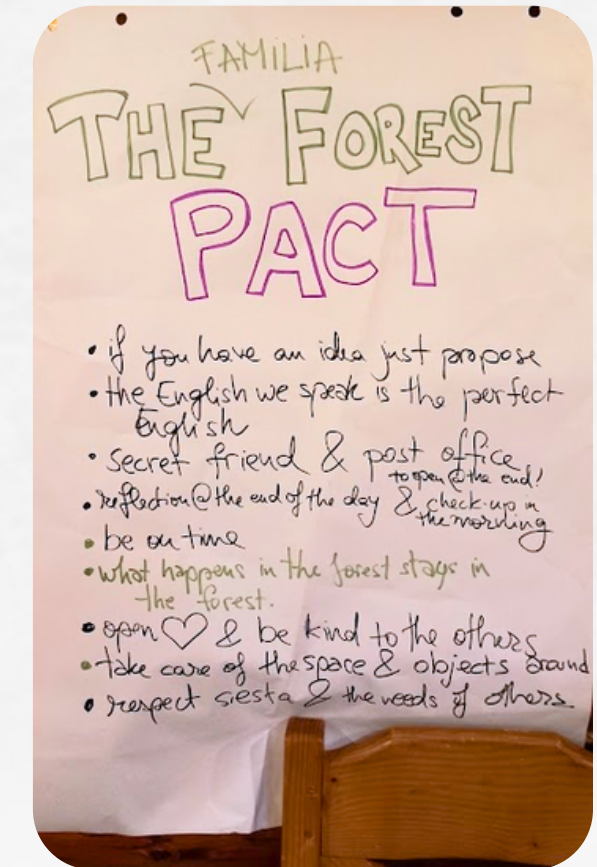 FAMILIA
THE FOREST
PACT
• if you have an idea just propose
• the English we speak is the perfect
English
• secret friend & post office
to open @ the end!
• reflection @ the end of the day & check-up in
the morning
• be on time
• what happens in the forest stays in
the forest.
• open ♡ & be kind to the others
• take care of the space & objects around
• respect siesta & the needs of others.